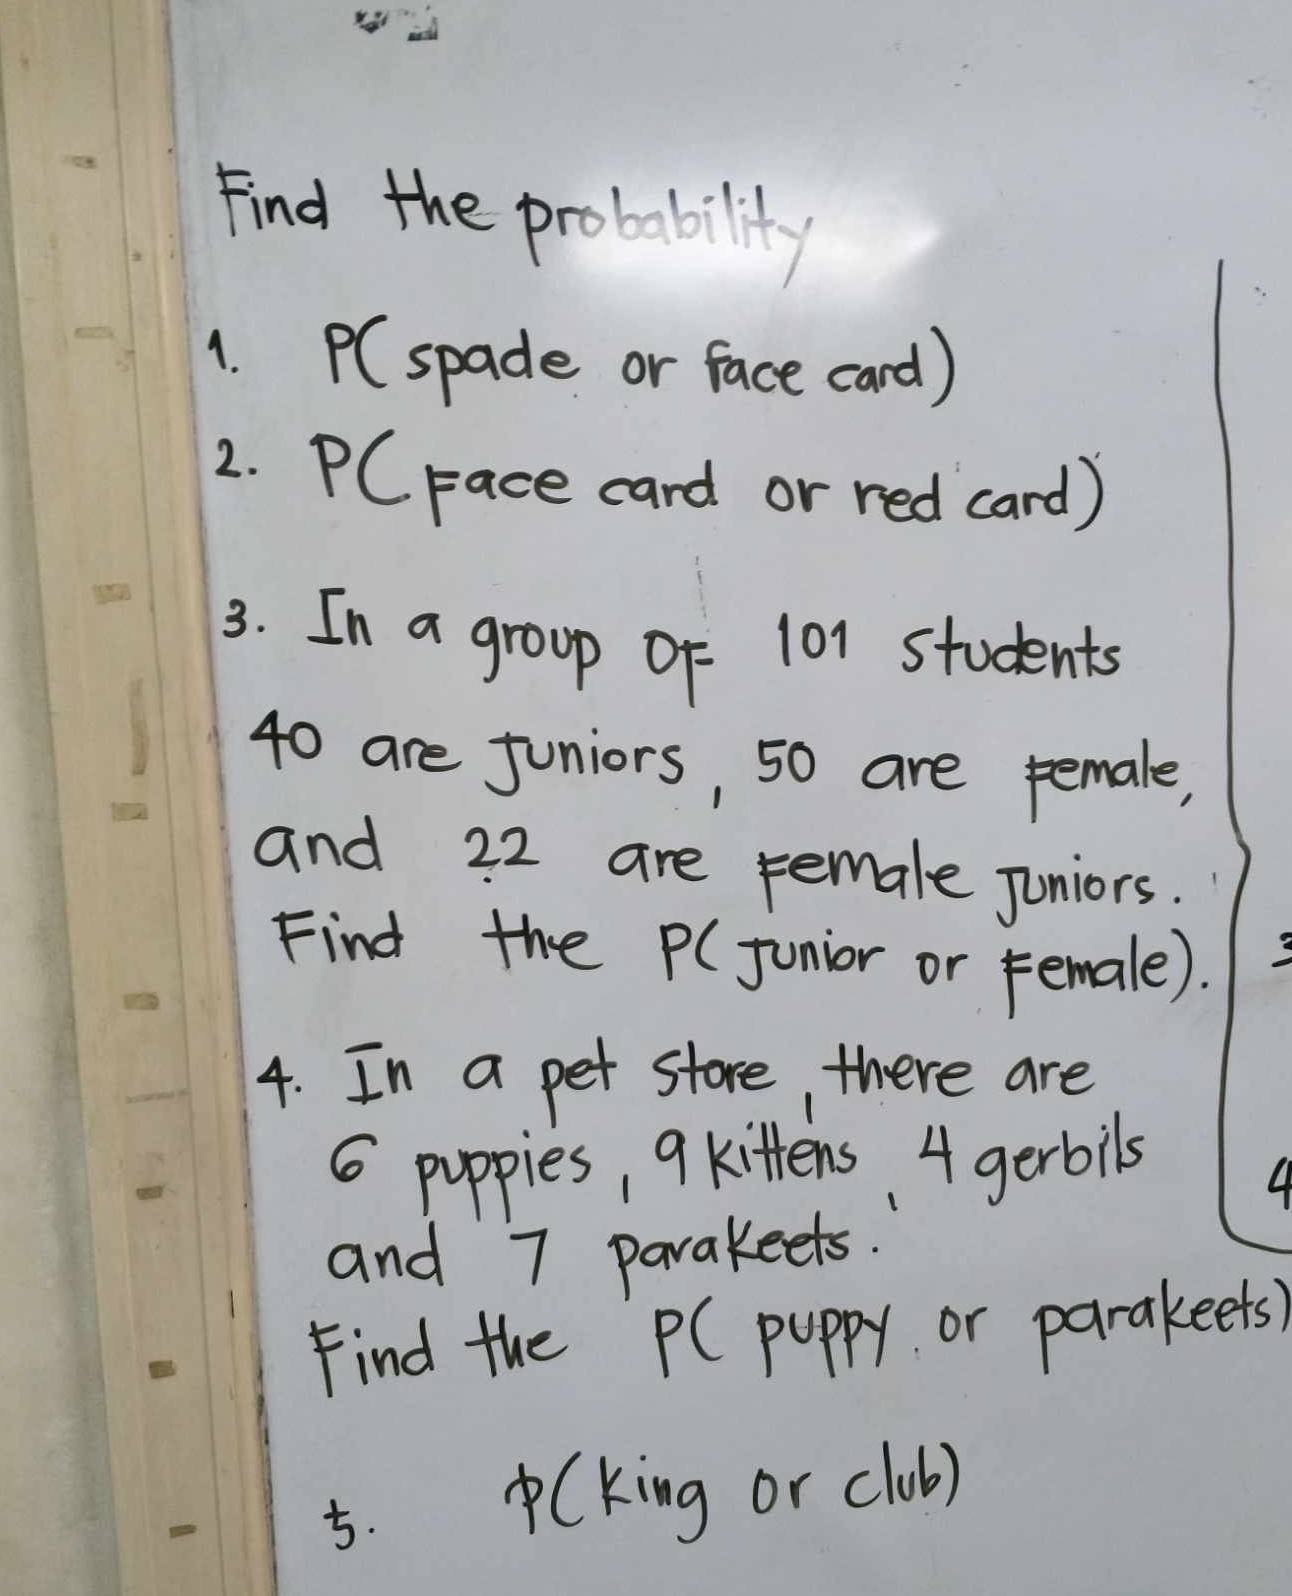 Find the probability
1. P(spade or face card)
2. P(Face card or red card)
3. In a group of 101 students
40 are juniors, 50 are female,
and 22 are female juniors.
Find the P(junior or female).
4. In a pet store, there are
6 puppies, 9 kittens, 4 gerbils
and 7 parakeets.
Find the P(puppy or parakeets)
5. P(king or club)
3
4